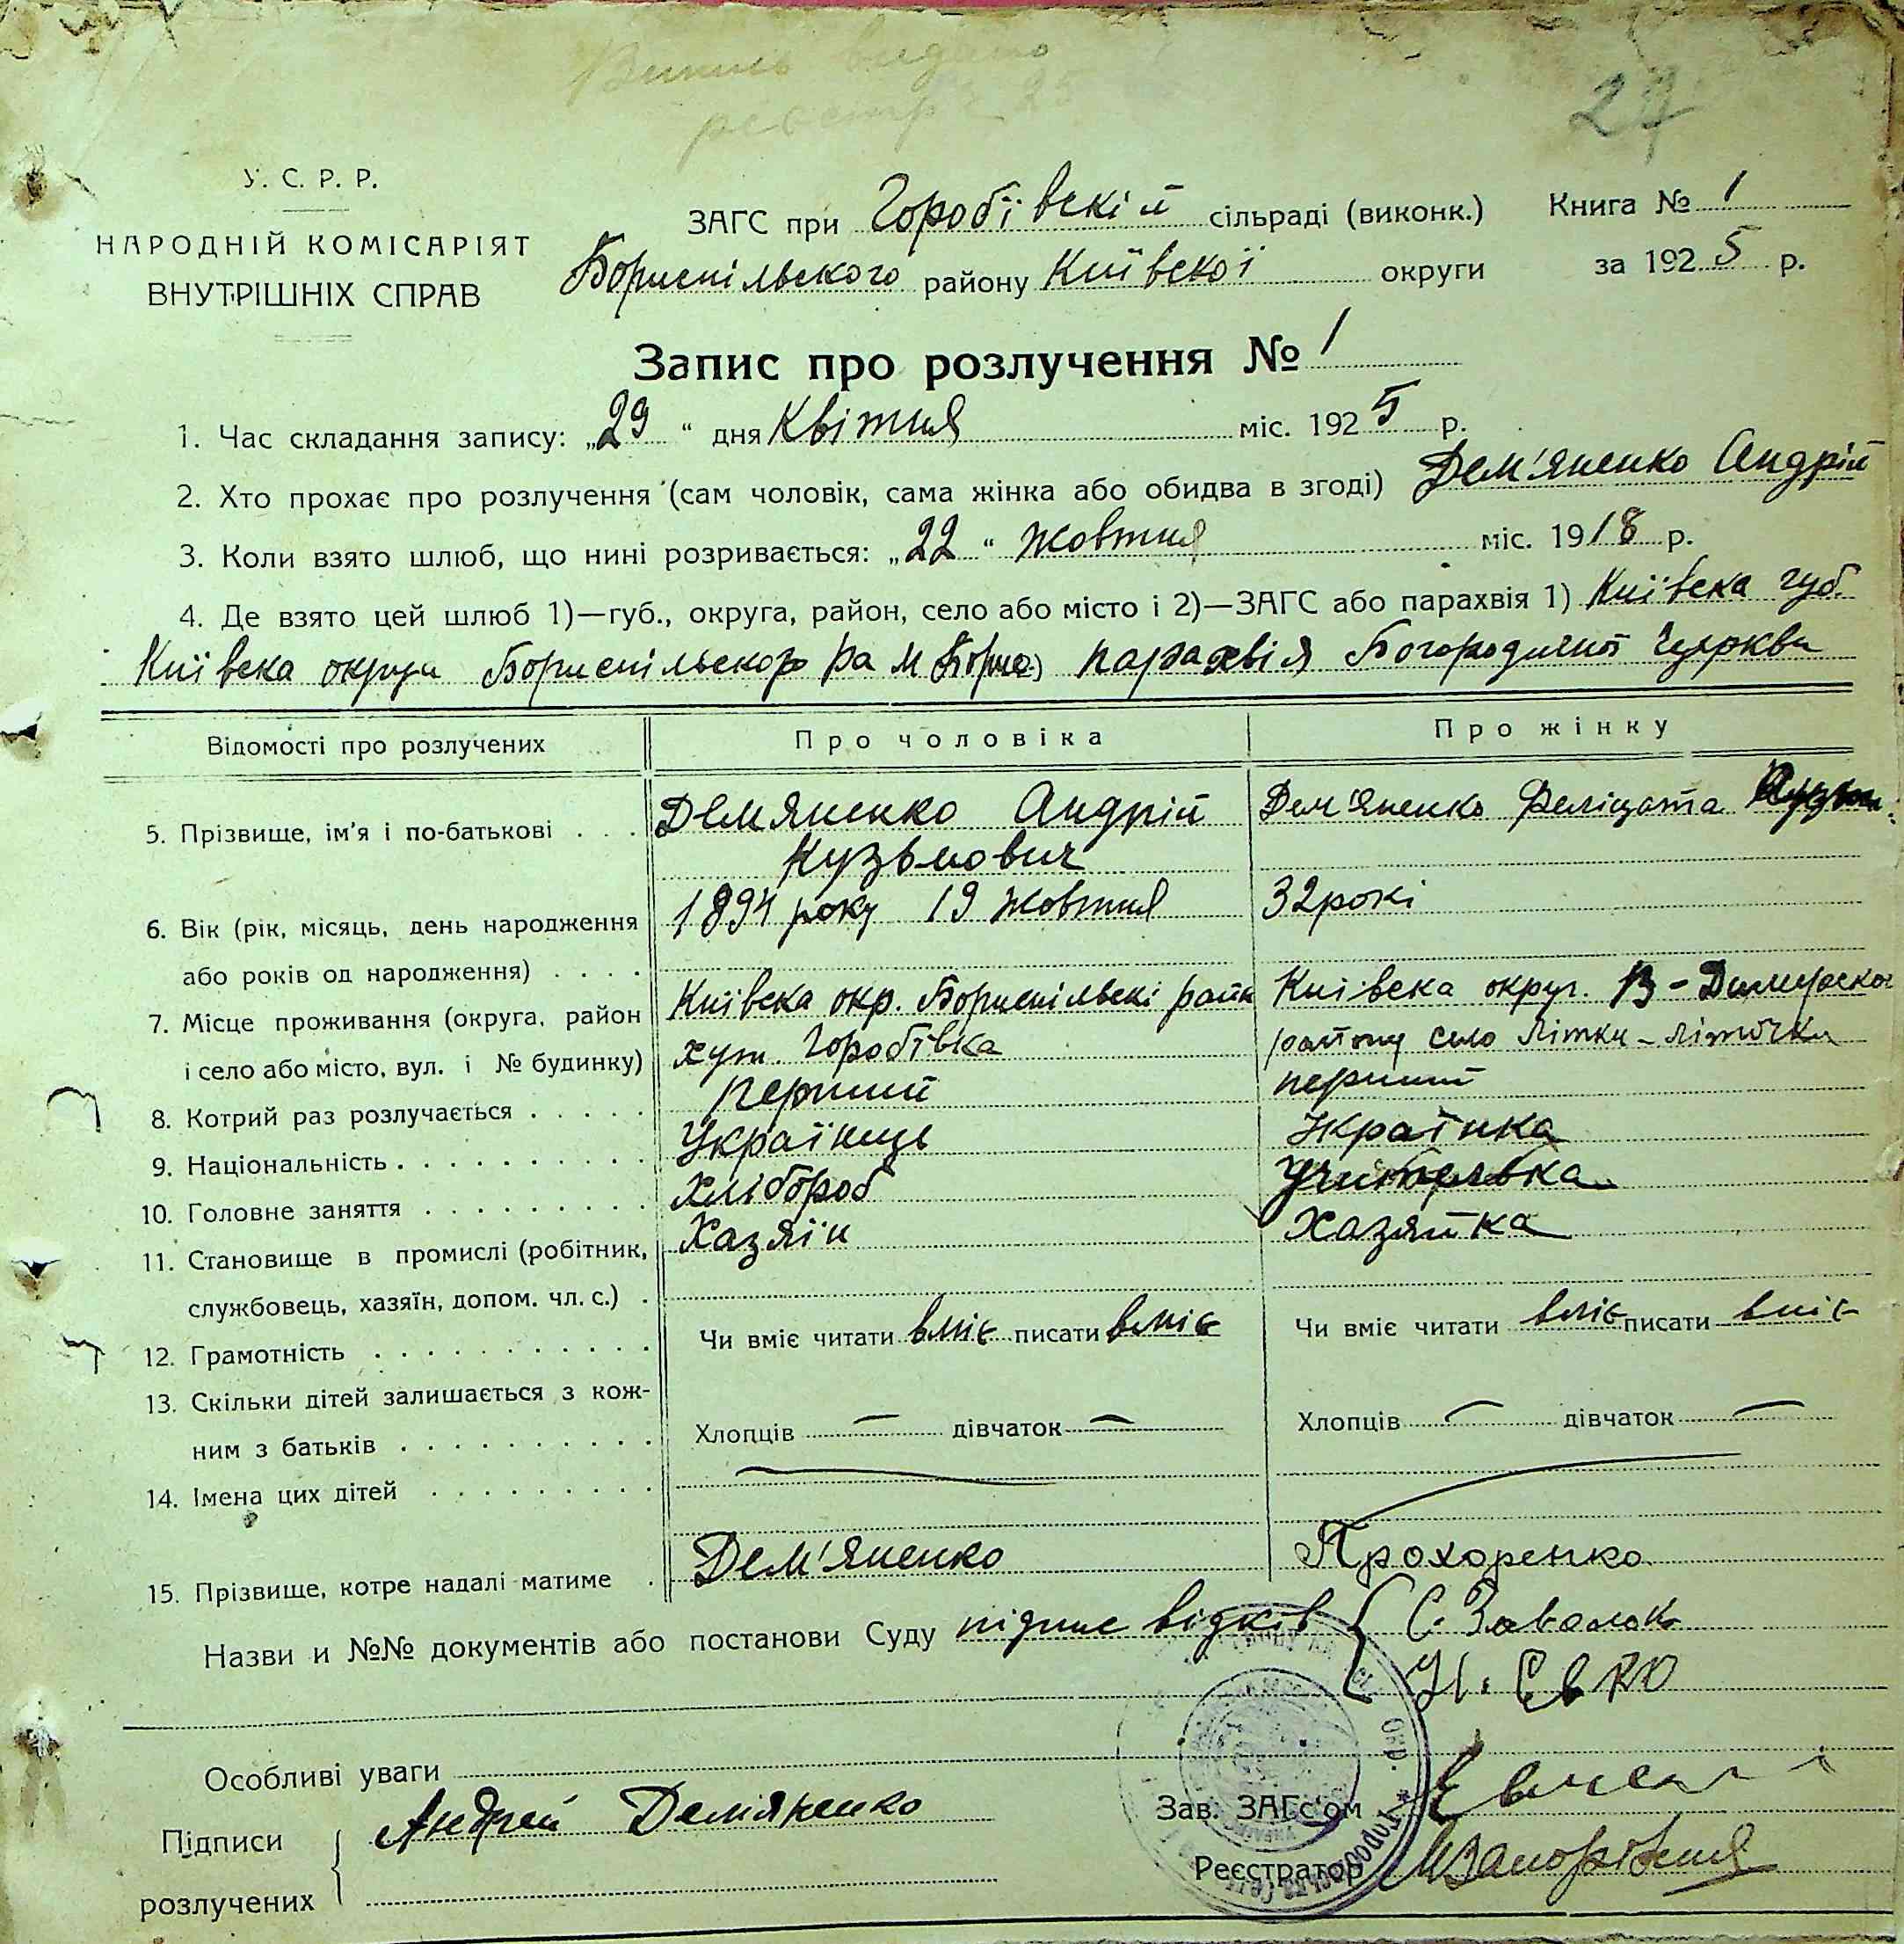 Випись видано
реєстр 25
27
У. С. Р. Р.
НАРОДНІЙ КОМІСАРІЯТ
ВНУТРІШНІХ СПРАВ
ЗАГС при Горобївскій сільраді (виконк.)
Бориспільского району Київскої округи
Книга № 1
за 1925 р.
Запис про розлучення № 1
1. Час складання запису: „29 “ дня Квітня міс. 1925 р.
2. Хто прохає про розлучення (сам чоловік, сама жінка або обидва в згоді) Дем'яненко Андрій
3. Коли взято шлюб, що нині розривається: „22 “ жовтня міс. 1918 р.
4. Де взято цей шлюб 1)—губ., округа, район, село або місто і 2)—ЗАГС або парахвія 1) Київска губ.
Київска округи Бориспільского ра м парахвія Богородичної Церкви
Відомості про розлучених
Про чоловіка
Про жінку
5. Прізвище, ім'я і по-батькові . . .
Демяненко Андрій
Кузьмович
Дем'яненко Феліцата
6. Вік (рік, місяць, день народження
або років од народження) . . . .
1894 року 19 жовтня
32 рокі
7. Місце проживання (округа, район
і село або місто, вул. і № будинку)
Київска окр. Бориспільскі райн
хут. Горобївка
Київска округ. В-Димерског
району село Літки-Літочки
8. Котрий раз розлучається . . . . .
перший
перший
9. Національність . . . . . . . . . .
Українць
Українка
10. Головне заняття . . . . . . . . .
Хлібороб
Учителька
11. Становище в промислі (робітник,
службовець, хазяїн, допом. чл. с.) .
Хазяїн
Хазяйка
12. Грамотність . . . . . . . . . . .
Чи вміє читати вміє писати вміє
Чи вміє читати вміє писати вміє
13. Скільки дітей залишається з кож-
ним з батьків . . . . . . . . . .
Хлопців — дівчаток —
Хлопців — дівчаток —
14. Імена цих дітей . . . . . . . . .
15. Прізвище, котре надалі матиме .
Дем'яненко
Прохоренко
Назви и №№ документів або постанови Суду підпис відків { С. Завалок
Особливі уваги
Підписи
розлучених
Андрей Демяненко
Зав. ЗАГс'ом
Реєстратор